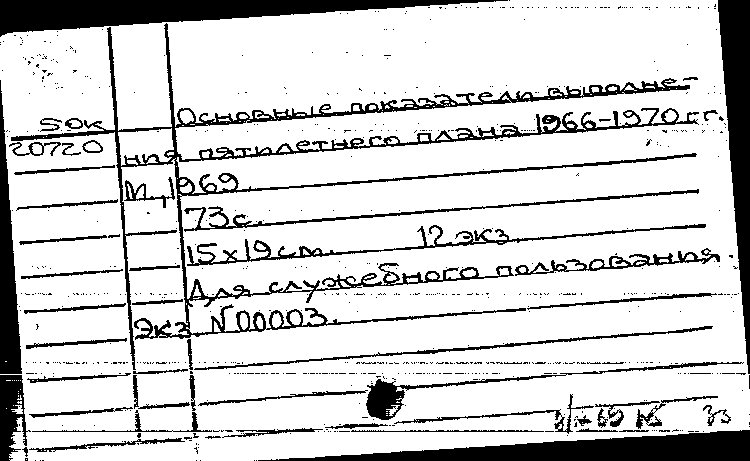 50к Основные показатели выполне-
20720 ния пятилетнего плана 1966-1970 гг.
М., 1969
73с.
15х19см. 12 экз.
Для служебного пользования.
Экз. №00003.